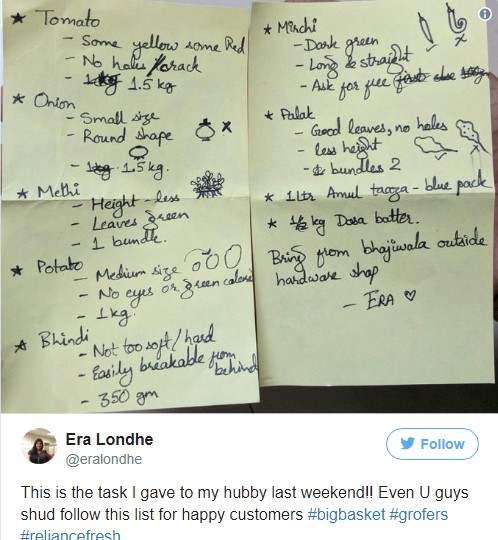 ★ Tomato
- Some yellow some Red
- No holes / crack
- 1.5 kg
★ Onion
- Small size
- Round shape
- 1.5 kg.
★ Methi
- Height - less
- Leaves green
- 1 bundle.
★ Potato
- Medium size
- No eyes or green colored
- 1kg.
★ Bhindi
- Not too soft / hard
- Easily breakable from behind
- 350 gm
★ Mirchi
- Dark green
- Long & straight
- Ask for free
★ Palak
- Good leaves, no holes
- less height
- bundles 2
★ 1 ltr Amul taaza - blue pack
★ 1/2 kg Dosa batter.
Bring from bhajiwala outside
hardware shop
- ERA ♡
Era Londhe
@eralondhe
Follow
This is the task I gave to my hubby last weekend!! Even U guys
shud follow this list for happy customers #bigbasket #grofers
#reliancefresh